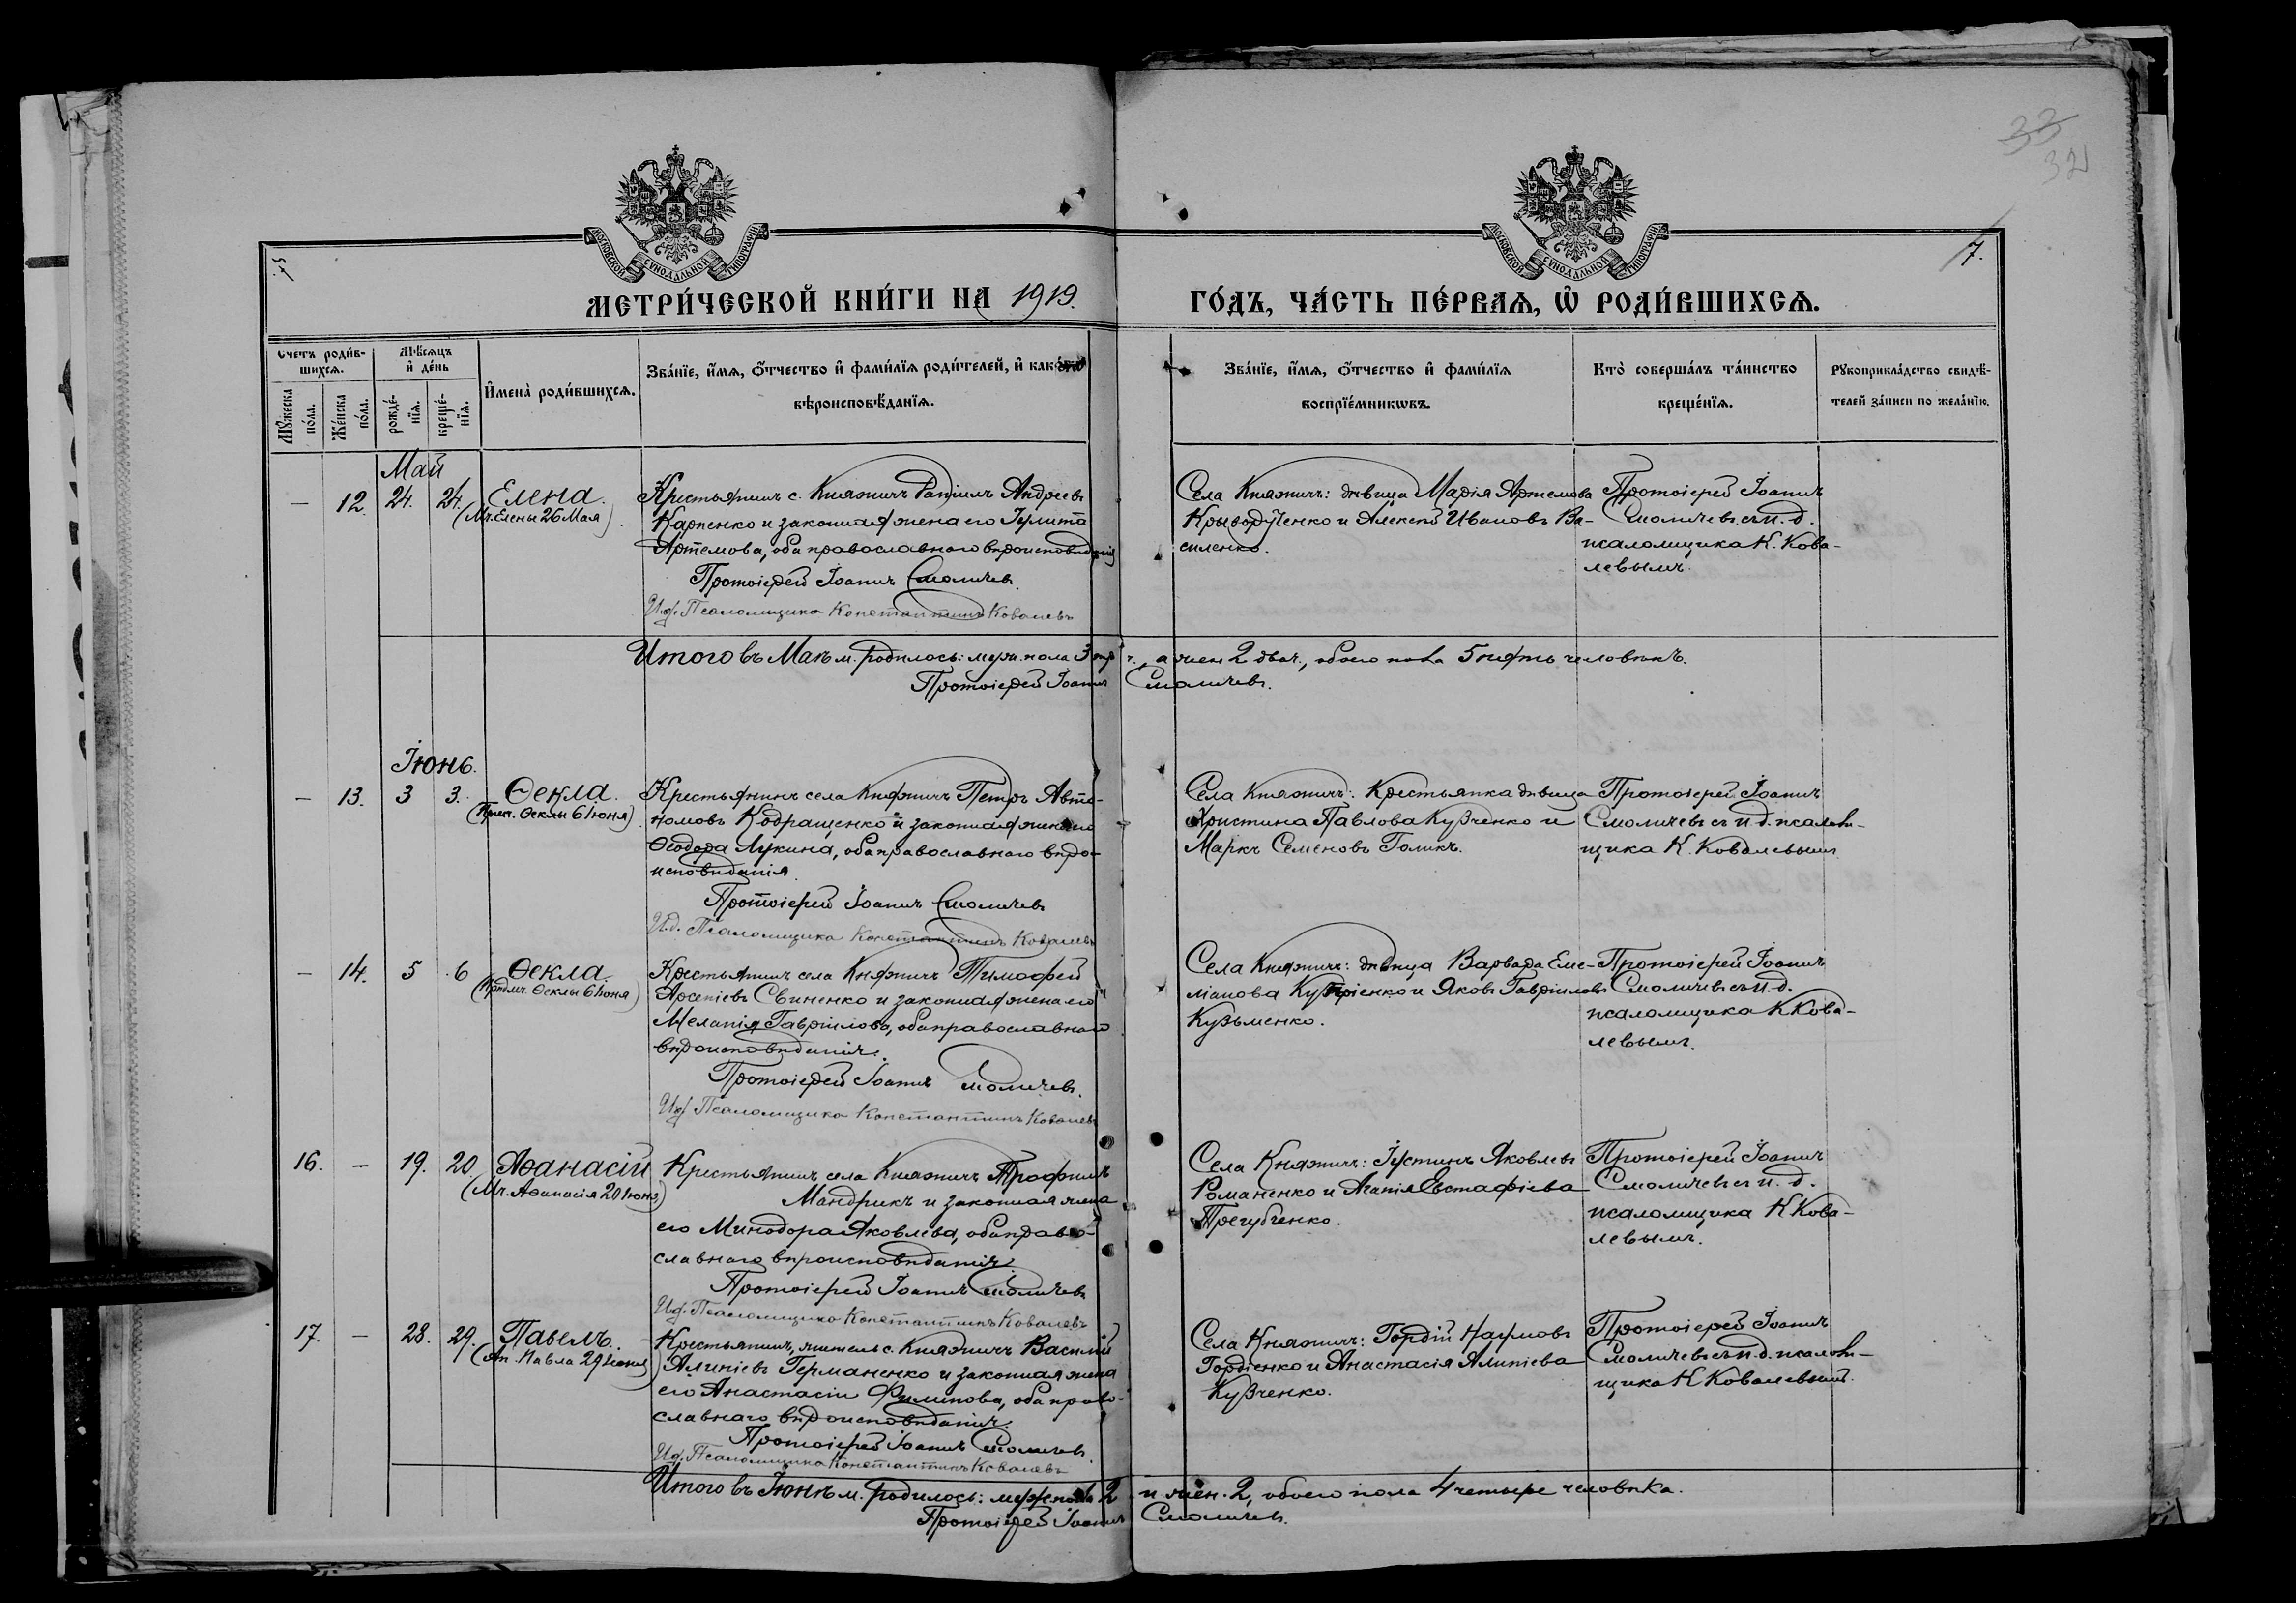 33
32
7.
МОСКОВСКОЙ СѴНОДАЛЬНОЙ ТИПОГРАФІИ
МОСКОВСКОЙ СѴНОДАЛЬНОЙ ТИПОГРАФІИ
МЕТРИ́ЧЕСКОЙ КНИ́ГИ НА 1919.
ГО́ДЪ, ЧА́СТЬ ПЕ́РВАѦ, Ѽ РОДИ́ВШИХСѦ.
Счетъ роди́в-
шихсѧ.
Мѣ́сѧцъ
и҆ де́нь
Мꙋ́жеска
по́ла.
Же́нска
по́ла.
рожде́-
нїѧ.
креще́-
нїѧ.
И҆мена̀ роди́вшихсѧ.
Зва́нїе, и҆́мѧ, ѻ҆́тчество и҆ фами́лїѧ роди́телей, и҆ како́гѡ
вѣроисповѣ́данїѧ.
Зва́нїе, и҆́мѧ, ѻ҆́тчество и҆ фами́лїѧ
воспрїе́мникѡвъ.
Кто̀ соверша́лъ та́инство
креще́нїѧ.
Рꙋкоприкла́дство свидѣ́-
телей за́писи по жела́нїю.
Май
— 12. 24. 24. Елена.
(Мч. Елены 26 Мая)
Крестьянинъ с. Княжичъ Даніилъ Андреевъ
Карпенко и законная жена его
Артемова, оба православнаго вѣроисповѣданія
Протоіерей Іоаннъ Смоличевъ
И.д. Псаломщика Константинъ Ковалевъ
Села Княжичъ: дѣвица Марія Артемова
Криворученко и Алексѣй Ивановъ Ва-
силенко.
Протоіерей Іоаннъ
Смоличевъ съ и. д.
псаломщика К. Кова-
левымъ.
Итого въ Маѣ м. родилось: муж. пола 3 , а жен 2 двѣ, обоего пола 5 пять человѣкъ.
Протоіерей Іоаннъ Смоличевъ.
Іюнь.
— 13. 3 3. Ѳекла.
(Прмч. Ѳеклы 6 Іюня)
Крестьянинъ села Княжичъ Петръ Авто-
номовъ Кодращенко и законная жена его
Ѳеодора Лукина, оба православнаго вѣро-
исповѣданія.
Протоіерей Іоаннъ Смоличевъ
И.д. Псаломщика Константинъ Ковалевъ
Села Княжичъ: Крестьянка дѣвица
Христина Павлова Кузченко и
Маркъ Семеновъ Голикъ.
Протоіерей Іоаннъ
Смоличевъ съ и. д. псалом-
щика К. Ковалевымъ
— 14. 5 6 Ѳекла.
(Прпдмч. Ѳеклы 6 Іюня)
Крестьянинъ села Княжичъ Тимофей
Арсеніевъ Свиненко и законная жена его
Меланія Гавріилова, оба православнаго
вѣроисповѣданія.
Протоіерей Іоаннъ Смоличевъ.
И.д. Псаломщика Константинъ Ковалевъ
Села Княжичъ: дѣвица Варвара Еме-
ліанова Купріенко и Яковъ Гавріиловъ
Кузьменко.
Протоіерей Іоаннъ
Смоличевъ съ и. д.
псаломщика К Кова-
левымъ.
16. — 19. 20 Аѳанасій
(Мч. Аѳанасія 20 Іюня)
Крестьянинъ села Княжичъ Трофимъ
Мандрикъ и законная жена
его Минодора Яковлева, оба право-
славнаго вѣроисповѣданія
Протоіерей Іоаннъ Смоличевъ
И.д. Псаломщика Константинъ Ковалевъ
Села Княжичъ: Іустинъ Яковлевъ
Романенко и Агапія Евстафіева
Трегубченко.
Протоіерей Іоаннъ
Смоличевъ съ и. д.
псаломщика К Кова-
левымъ.
17. — 28. 29. Павелъ.
(Ап. Павла 29 Іюня)
Крестьянинъ, житель с. Княжичъ Василій
Алипіевъ Германенко и законная жена
его Анастасія Филипова, оба право-
славнаго вѣроисповѣданія.
Протоіерей Іоаннъ Смоличевъ.
И.д. Псаломщика Константинъ Ковалевъ
Села Княжичъ: Гордій Наумовъ
Гордіенко и Анастасія Алипіева
Кузченко.
Протоіерей Іоаннъ
Смоличевъ съ и. д. псалом-
щика К Ковалевымъ.
Итого въ Іюнѣ м. родилось: муж. пола 2 и жен. 2, обоего пола 4 четыре человѣка.
Протоіерей Іоаннъ Смоличев.